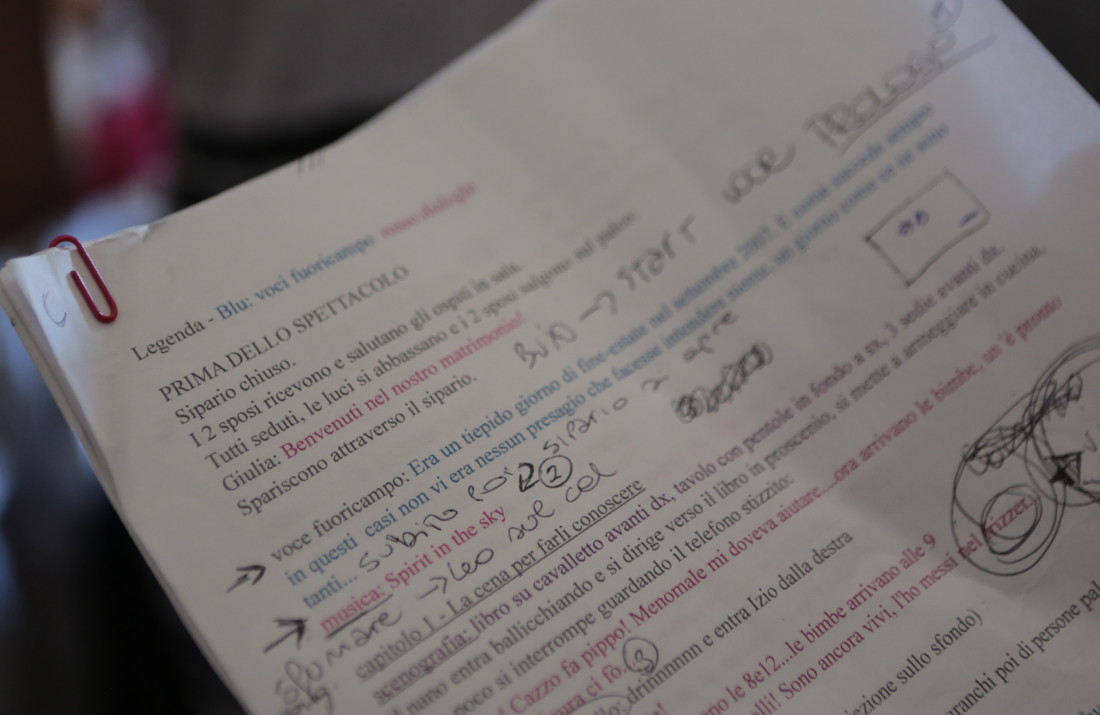 voce PROLOGO
Legenda - Blu: voci fuoricampo rosso:dialoghi
PRIMA DELLO SPETTACOLO
Sipario chiuso.
I 2 sposi ricevono e salutano gli ospiti in sala.
Tutti seduti, le luci si abbassano e i 2 sposi salgono sul palco
Giulia: Benvenuti nel nostro matrimonio!
Spariscono attraverso il sipario.
BUIO → START
voce fuoricampo: Era un tiepido giorno di fine-estate nel settembre 2007. E come succede sempre
in questi casi non vi era nessun presagio che facesse intendere niente, un giorno come ce ne sono
tanti... subito 2 sipario si apre
musica: Spirit in the sky
sfumare → Leo sul cel
capitolo 1 - La cena per farli conoscere
scenografia: libro su cavalletto avanti dx, tavolo con pentole in fondo a sx, 3 sedie avanti dx.
nano entra ballicchiando e si dirige verso il libro in proscenio, si mette a armeggiare in cucina,
poco si interrompe guardando il telefono stizzito:
Cazzo fa pippo! Menomale mi doveva aiutare...ora arrivano le bimbe, un 'è pronto
ci fo.. 2
drinnnnn e entra Izio dalla destra
ono le 8e12...le bimbe arrivano alle 9
alli! Sono ancora vivi, l'ho messi nel frizzer.
iezione sullo sfondo)
granchi poi di persone pa